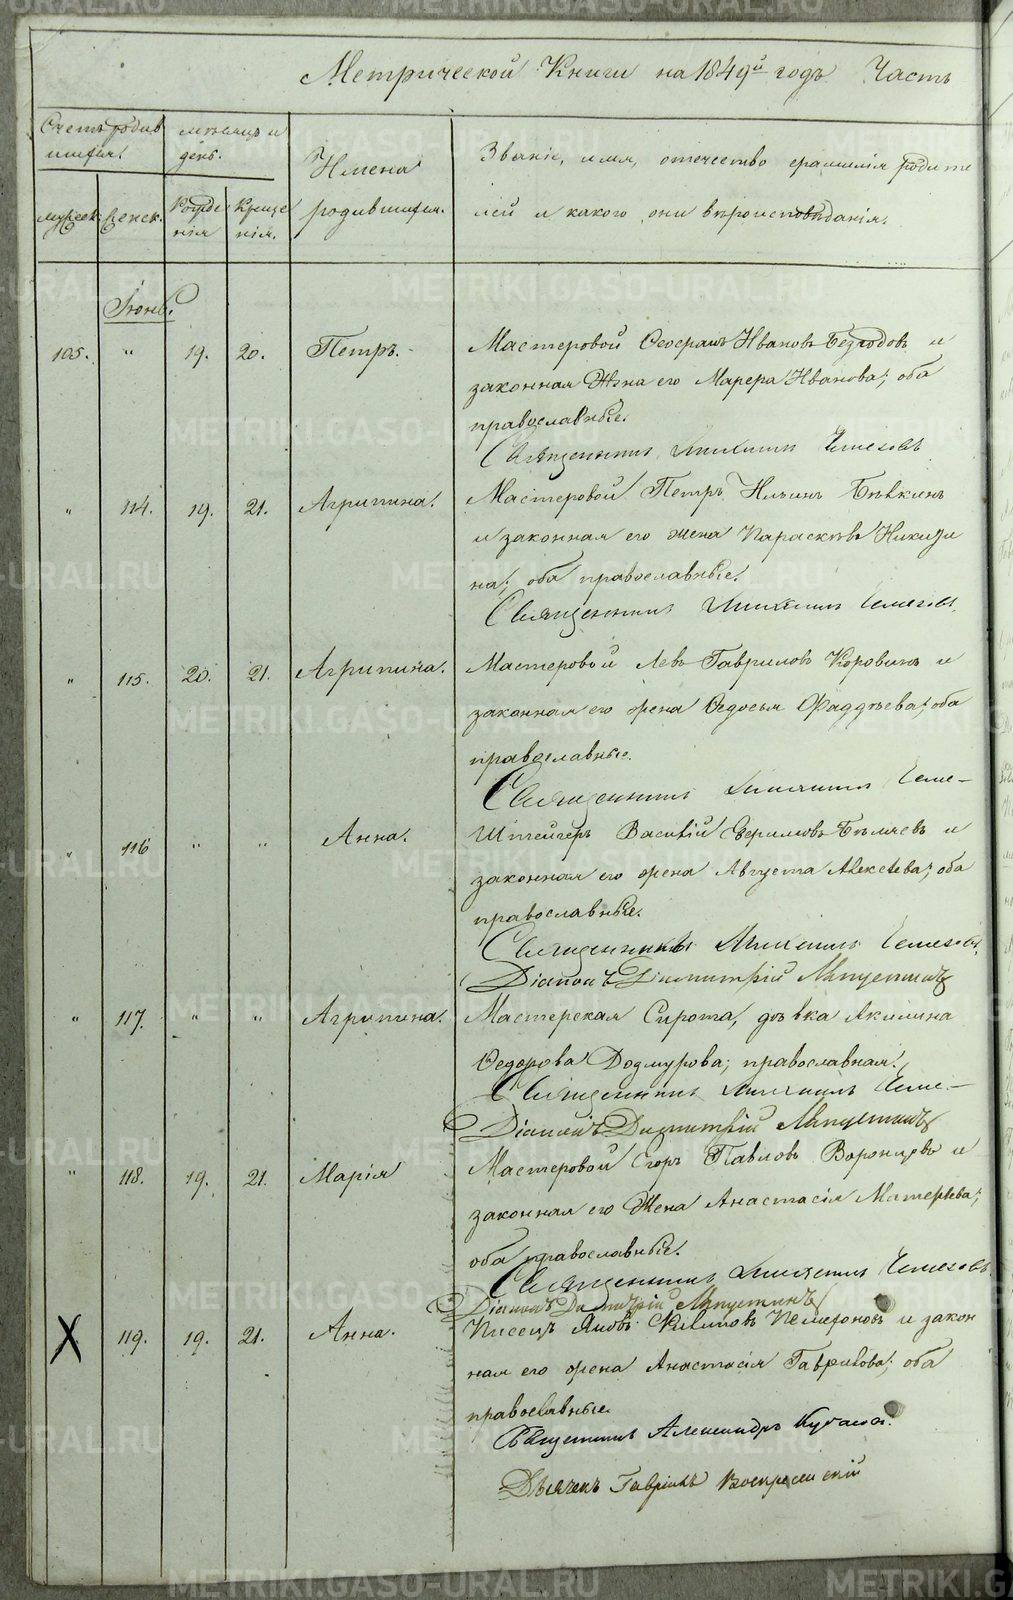 Метрической Книги на 1849й годъ Часть
Счетъ родив
шихся.
мѣсяцъ и
день.
Имена
родившихся.
Званіе, имя, отечество и фамилія родите
лей и какого они вѣроисповѣданія.
мужеск.
женск.
Рожде
нія
Креще
нія.
Іюнь.
105. " 19. 20. Петръ.
Мастеровой Ѳеофанъ Ивановъ и
законная Жена его Марѳа Иванова; оба
православные.
Священникъ Михаилъ
" 114. 19. 21. Агрипина.
Мастеровой Петръ Ильинъ Бѣлкинъ
и законная его жена Параскева Никити
на; оба православные.
Священникъ Михаилъ
" 115. 20. 21. Агрипина.
Мастеровой Левъ Гавриловъ Коровинъ и
законная его жена Ѳедосья Фаддѣева; оба
православные.
Священникъ Михаилъ
" 116 " " Анна.
Штейгеръ Василій Бѣляевъ и
законная его жена Августа Алексѣева; оба
православные.
Священникъ Михаилъ
Діаконъ Димитрій
" 117. " " Агрипина.
Мастерская Сирота, дѣвка Акилина
Ѳедорова; православная.
Священникъ Михаилъ
Діаконъ Димитрій
" 118. 19. 21. Марія
Мастеровой Егоръ Павловъ Воронцовъ и
законная его Жена Анастасія Матвѣева;
оба православные.
Священникъ Михаилъ
Діаконъ Димитрій
X 119. 19. 21. Анна.
Писецъ Яковъ и закон
ная его жена Анастасія Гаврилова; оба
православные.
Священникъ Александръ
Дьячекъ Гавріилъ Воскресенскій
METRIKI.GASO-URAL.RU